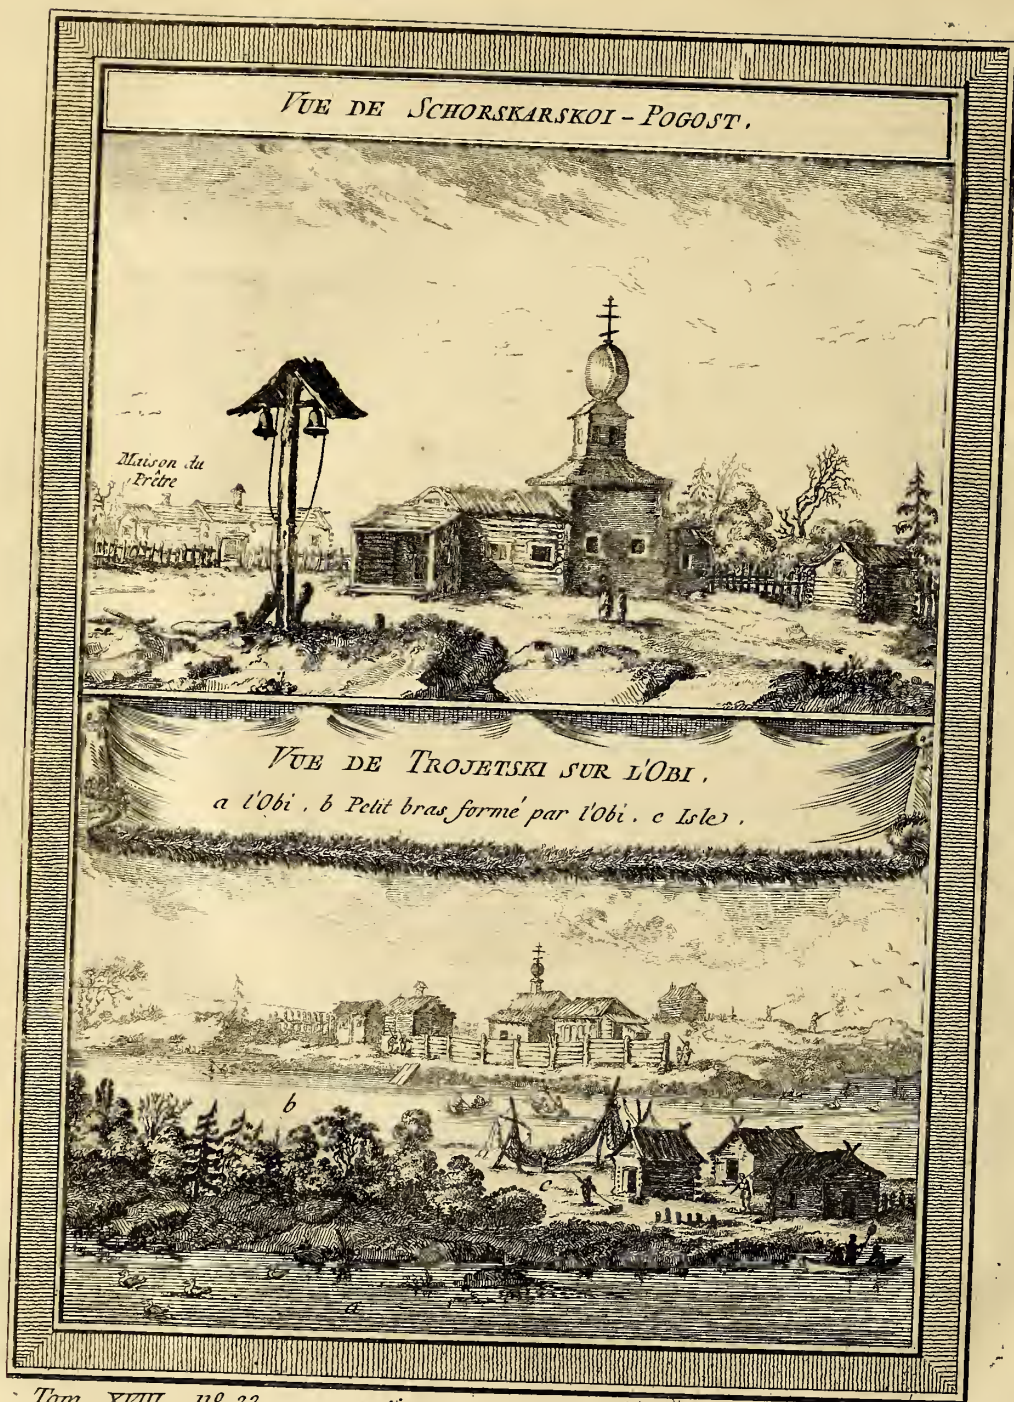 VUE DE SCHORSKARSKOI-POGOST.
Maison du
Prêtre
VUE DE TROJETSKI SUR L'OBI.
a l'Obi. b Petit bras formé par l'Obi. c Isle.
b
c
a
Tom. XVIII. nº 22